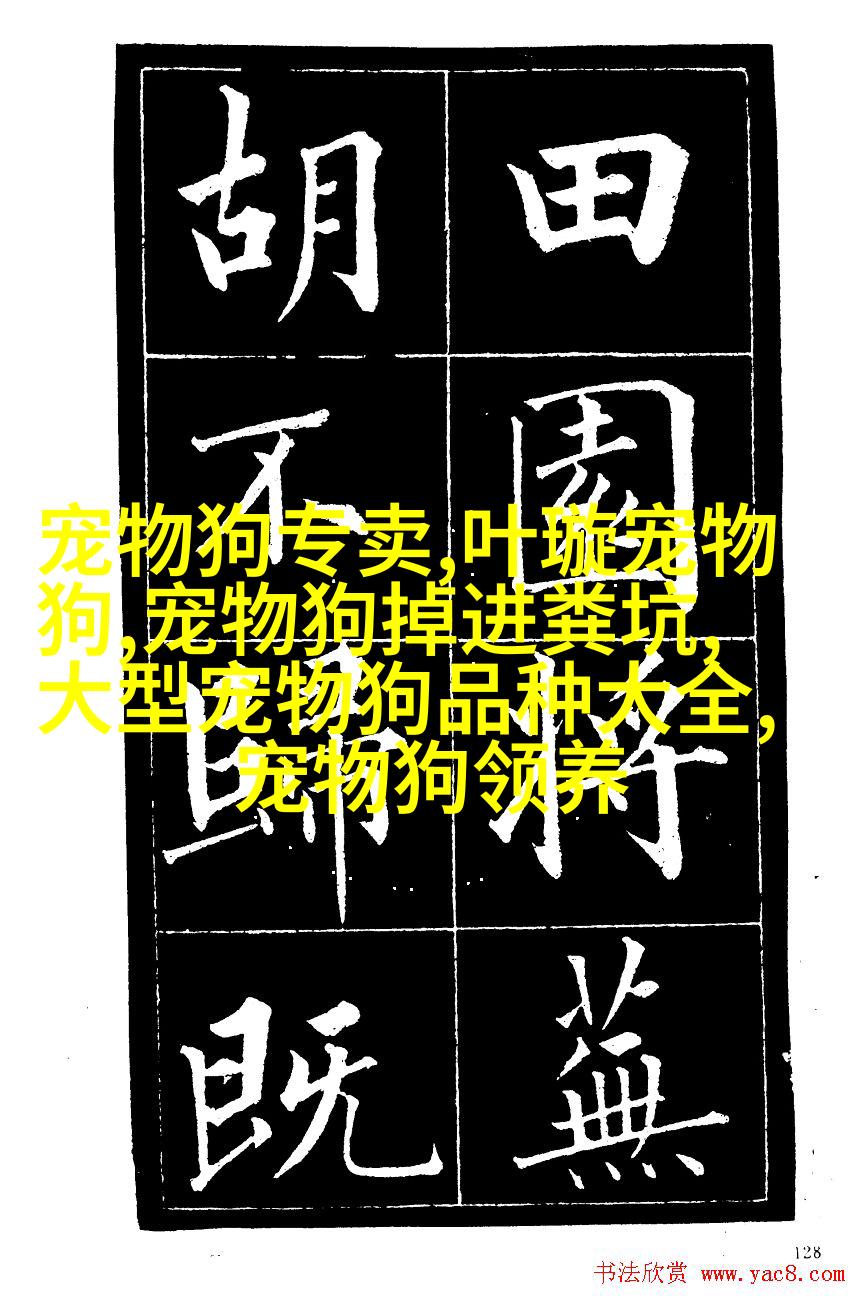 田園將蕪
胡不歸既
宠物狗专卖,叶璇宠物
狗,宠物狗掉进粪坑,
大型宠物狗品种大全,
宠物狗领养
128
书法欣赏 www.yac8.com